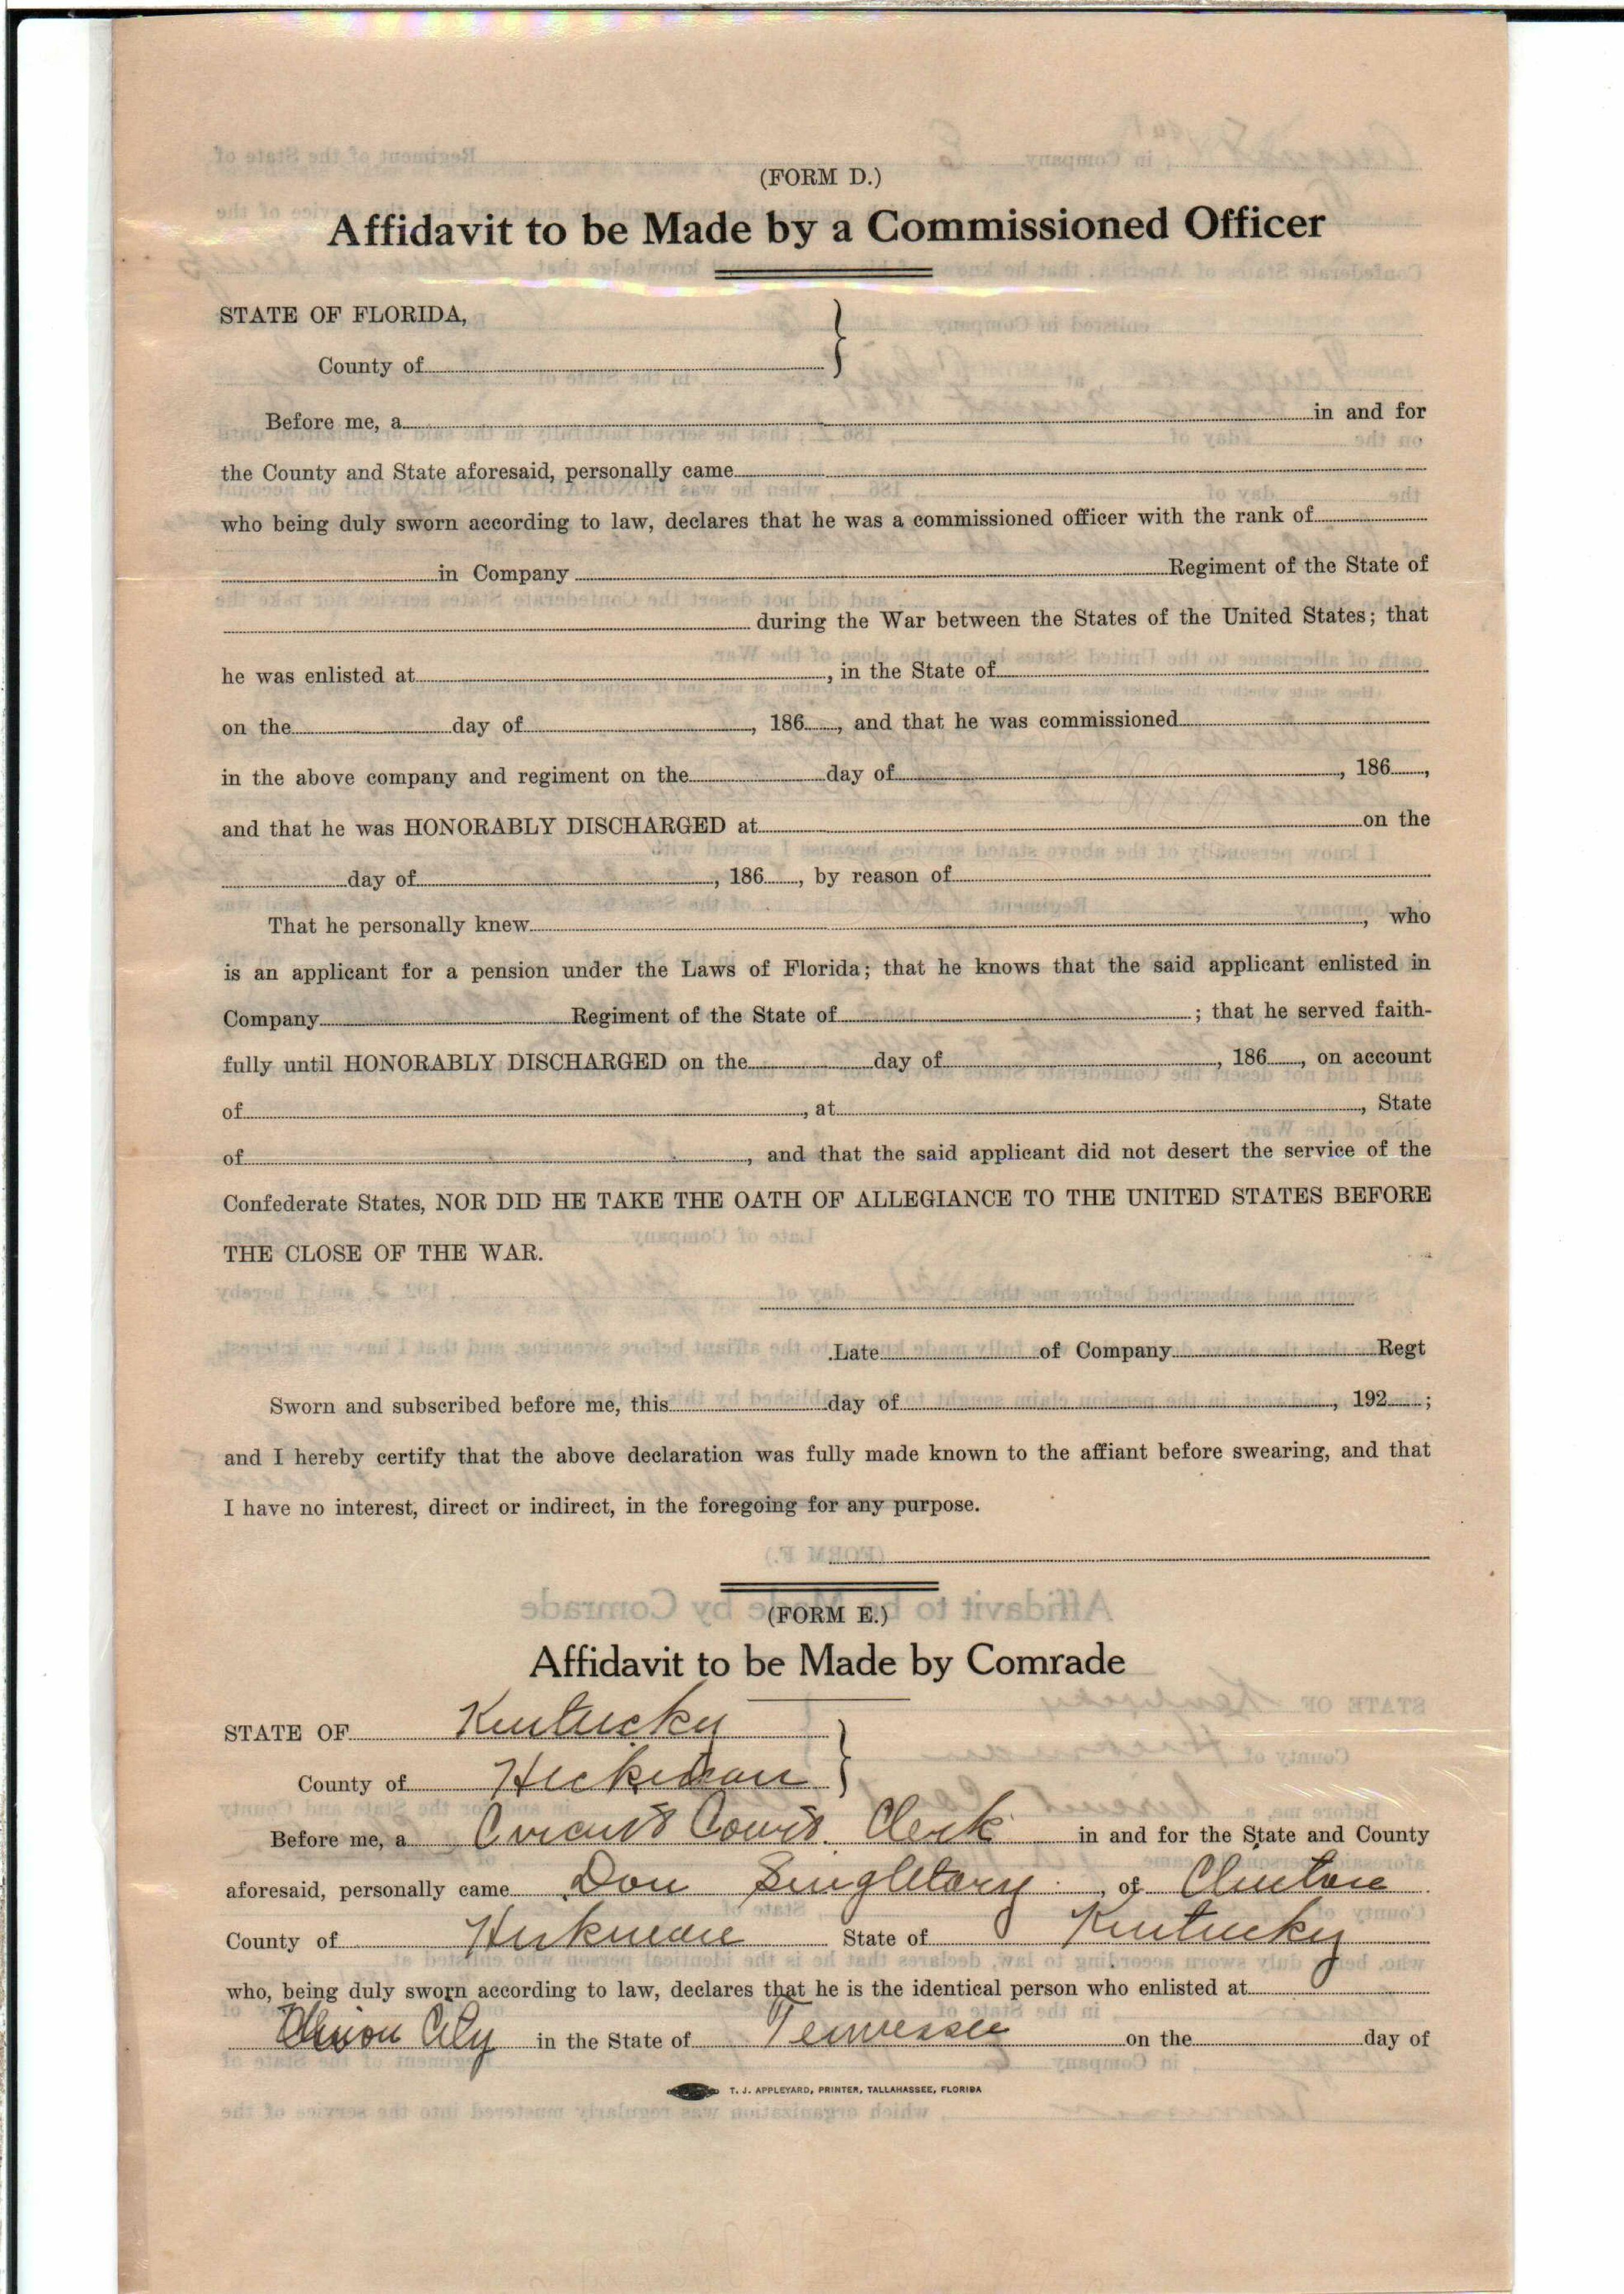 (FORM D.)
Affidavit to be Made by a Commissioned Officer
STATE OF FLORIDA,
County of
Before me, a in and for
the County and State aforesaid, personally came
who being duly sworn according to law, declares that he was a commissioned officer with the rank of
in Company Regiment of the State of
during the War between the States of the United States; that
he was enlisted at , in the State of
on the day of , 186 , and that he was commissioned
in the above company and regiment on the day of , 186 ,
and that he was HONORABLY DISCHARGED at on the
day of , 186 , by reason of
That he personally knew , who
is an applicant for a pension under the Laws of Florida; that he knows that the said applicant enlisted in
Company Regiment of the State of ; that he served faith-
fully until HONORABLY DISCHARGED on the day of , 186 , on account
of , at , State
of , and that the said applicant did not desert the service of the
Confederate States, NOR DID HE TAKE THE OATH OF ALLEGIANCE TO THE UNITED STATES BEFORE
THE CLOSE OF THE WAR.
Late of Company Regt
Sworn and subscribed before me, this day of , 192 ;
and I hereby certify that the above declaration was fully made known to the affiant before swearing, and that
I have no interest, direct or indirect, in the foregoing for any purpose.
(FORM E.)
Affidavit to be Made by Comrade
STATE OF Kentucky
County of Hickman
Before me, a Circuit Court Clerk in and for the State and County
aforesaid, personally came Don Singletary , of Clinton
County of Hickman State of Kentucky
who, being duly sworn according to law, declares that he is the identical person who enlisted at
Union City in the State of Tennessee on the day of
T. J. APPLEYARD, PRINTER, TALLAHASSEE, FLORIDA